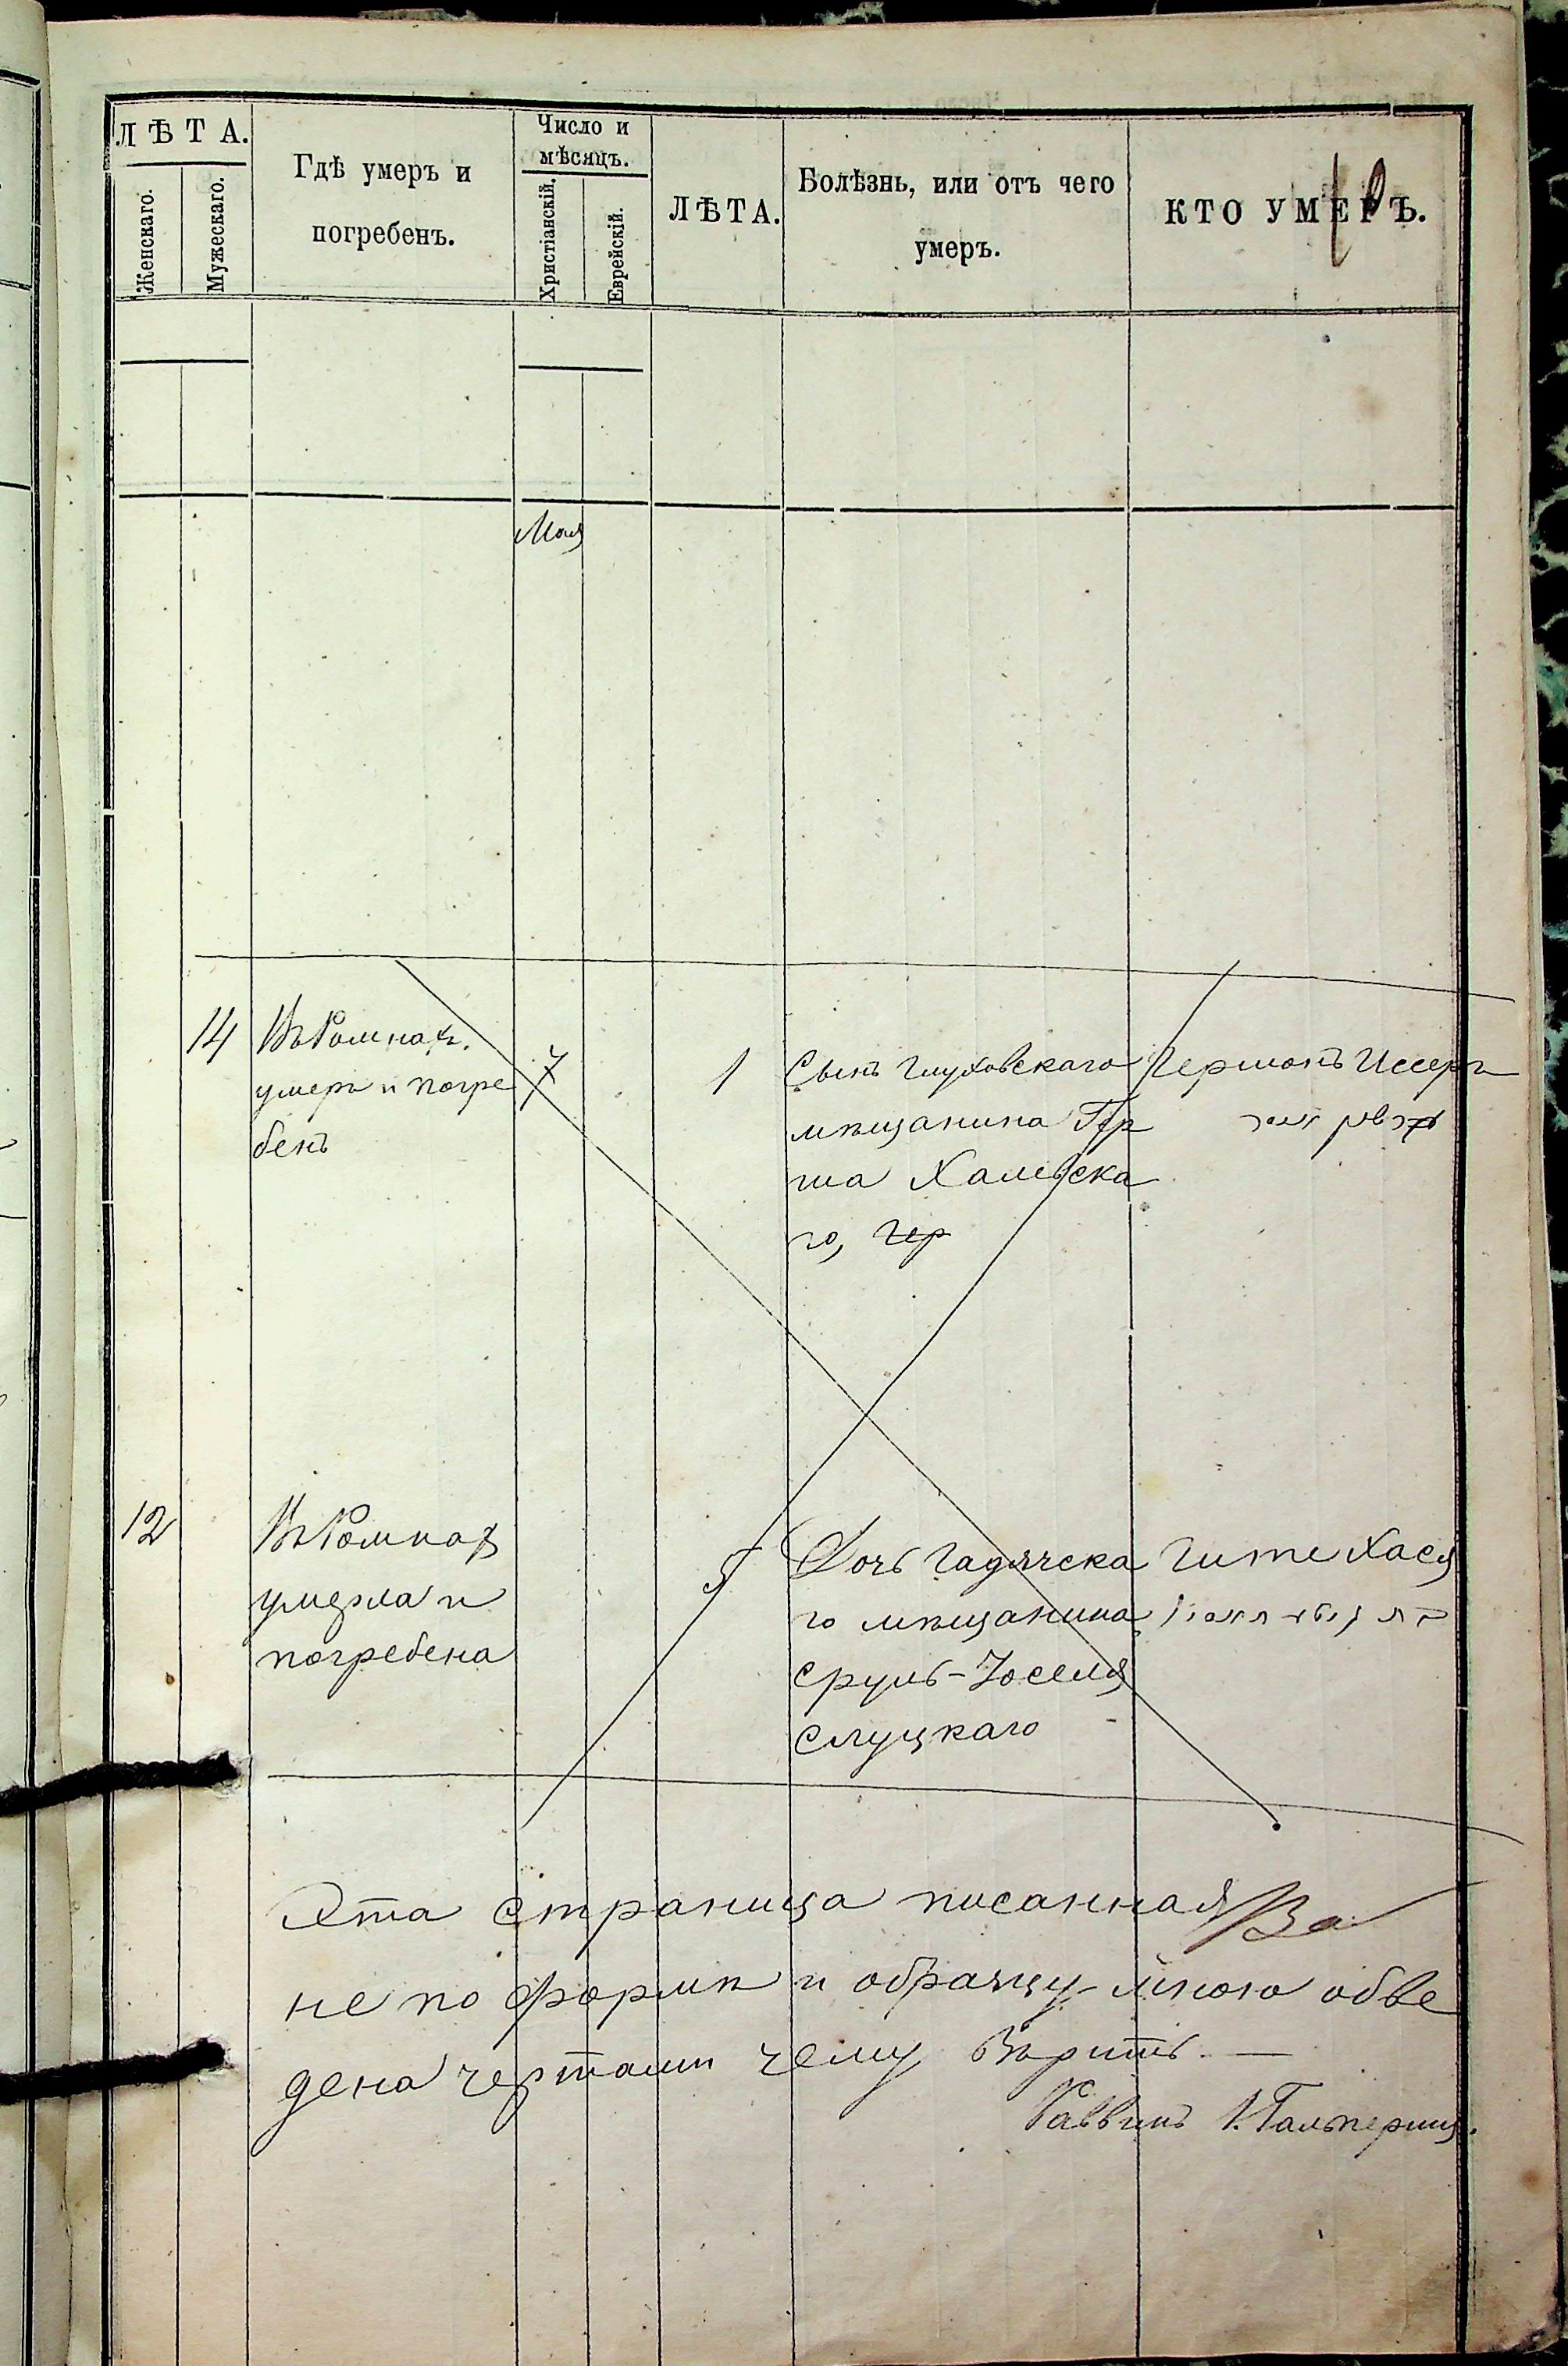 ЛѢТА.
Женскаго.
Мужескаго.
Гдѣ умеръ и
погребенъ.
Число и
мѣсяцъ.
Христіанскій.
Еврейскій.
ЛѢТА.
Болѣзнь, или отъ чего
умеръ.
КТО УМЕРЪ.
Мая
14
Въ Ромнахъ.
умеръ и погре
бенъ
7
1
Сынъ Глуховскаго
мѣщанина Гер
ша Халевска
го, Гер
Германъ Иссеръ
12
Въ Ромнах
умерла и
погребена
5
Дочь Гадячска
го мѣщанина
Сруль-Іоселя
Слуцкаго
Гите Хася
Эта страница писанная
не по формѣ и образцу мною обве
дена чертами чему вѣрить. —
Раввинъ І. Гальперинъ.